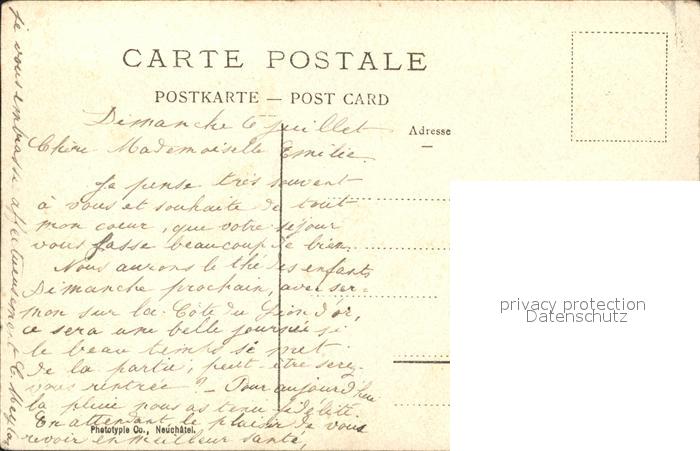 CARTE POSTALE
POSTKARTE — POST CARD
Adresse
Dimanche 6 juillet
Chère Mademoiselle Emilie.
Je pense très souvent
à vous et souhaite de tout
mon coeur, que votre séjour
vous fasse beaucoup de bien.
Nous aurons le thé des enfants
Dimanche prochain, avec ser-
mon sur la Côte du Lion d'or,
ce sera une belle journée si
le beau temps se met
de la partie, peut-être serez-
vous rentrée ? — Pour aujourd'hui
la pluie nous a tenu
En attendant le plaisir de vous
revoir en meilleur santé,
je vous embrasse affectueusement C. Meylan
Phototypie Co., Neuchâtel.
privacy protection
Datenschutz